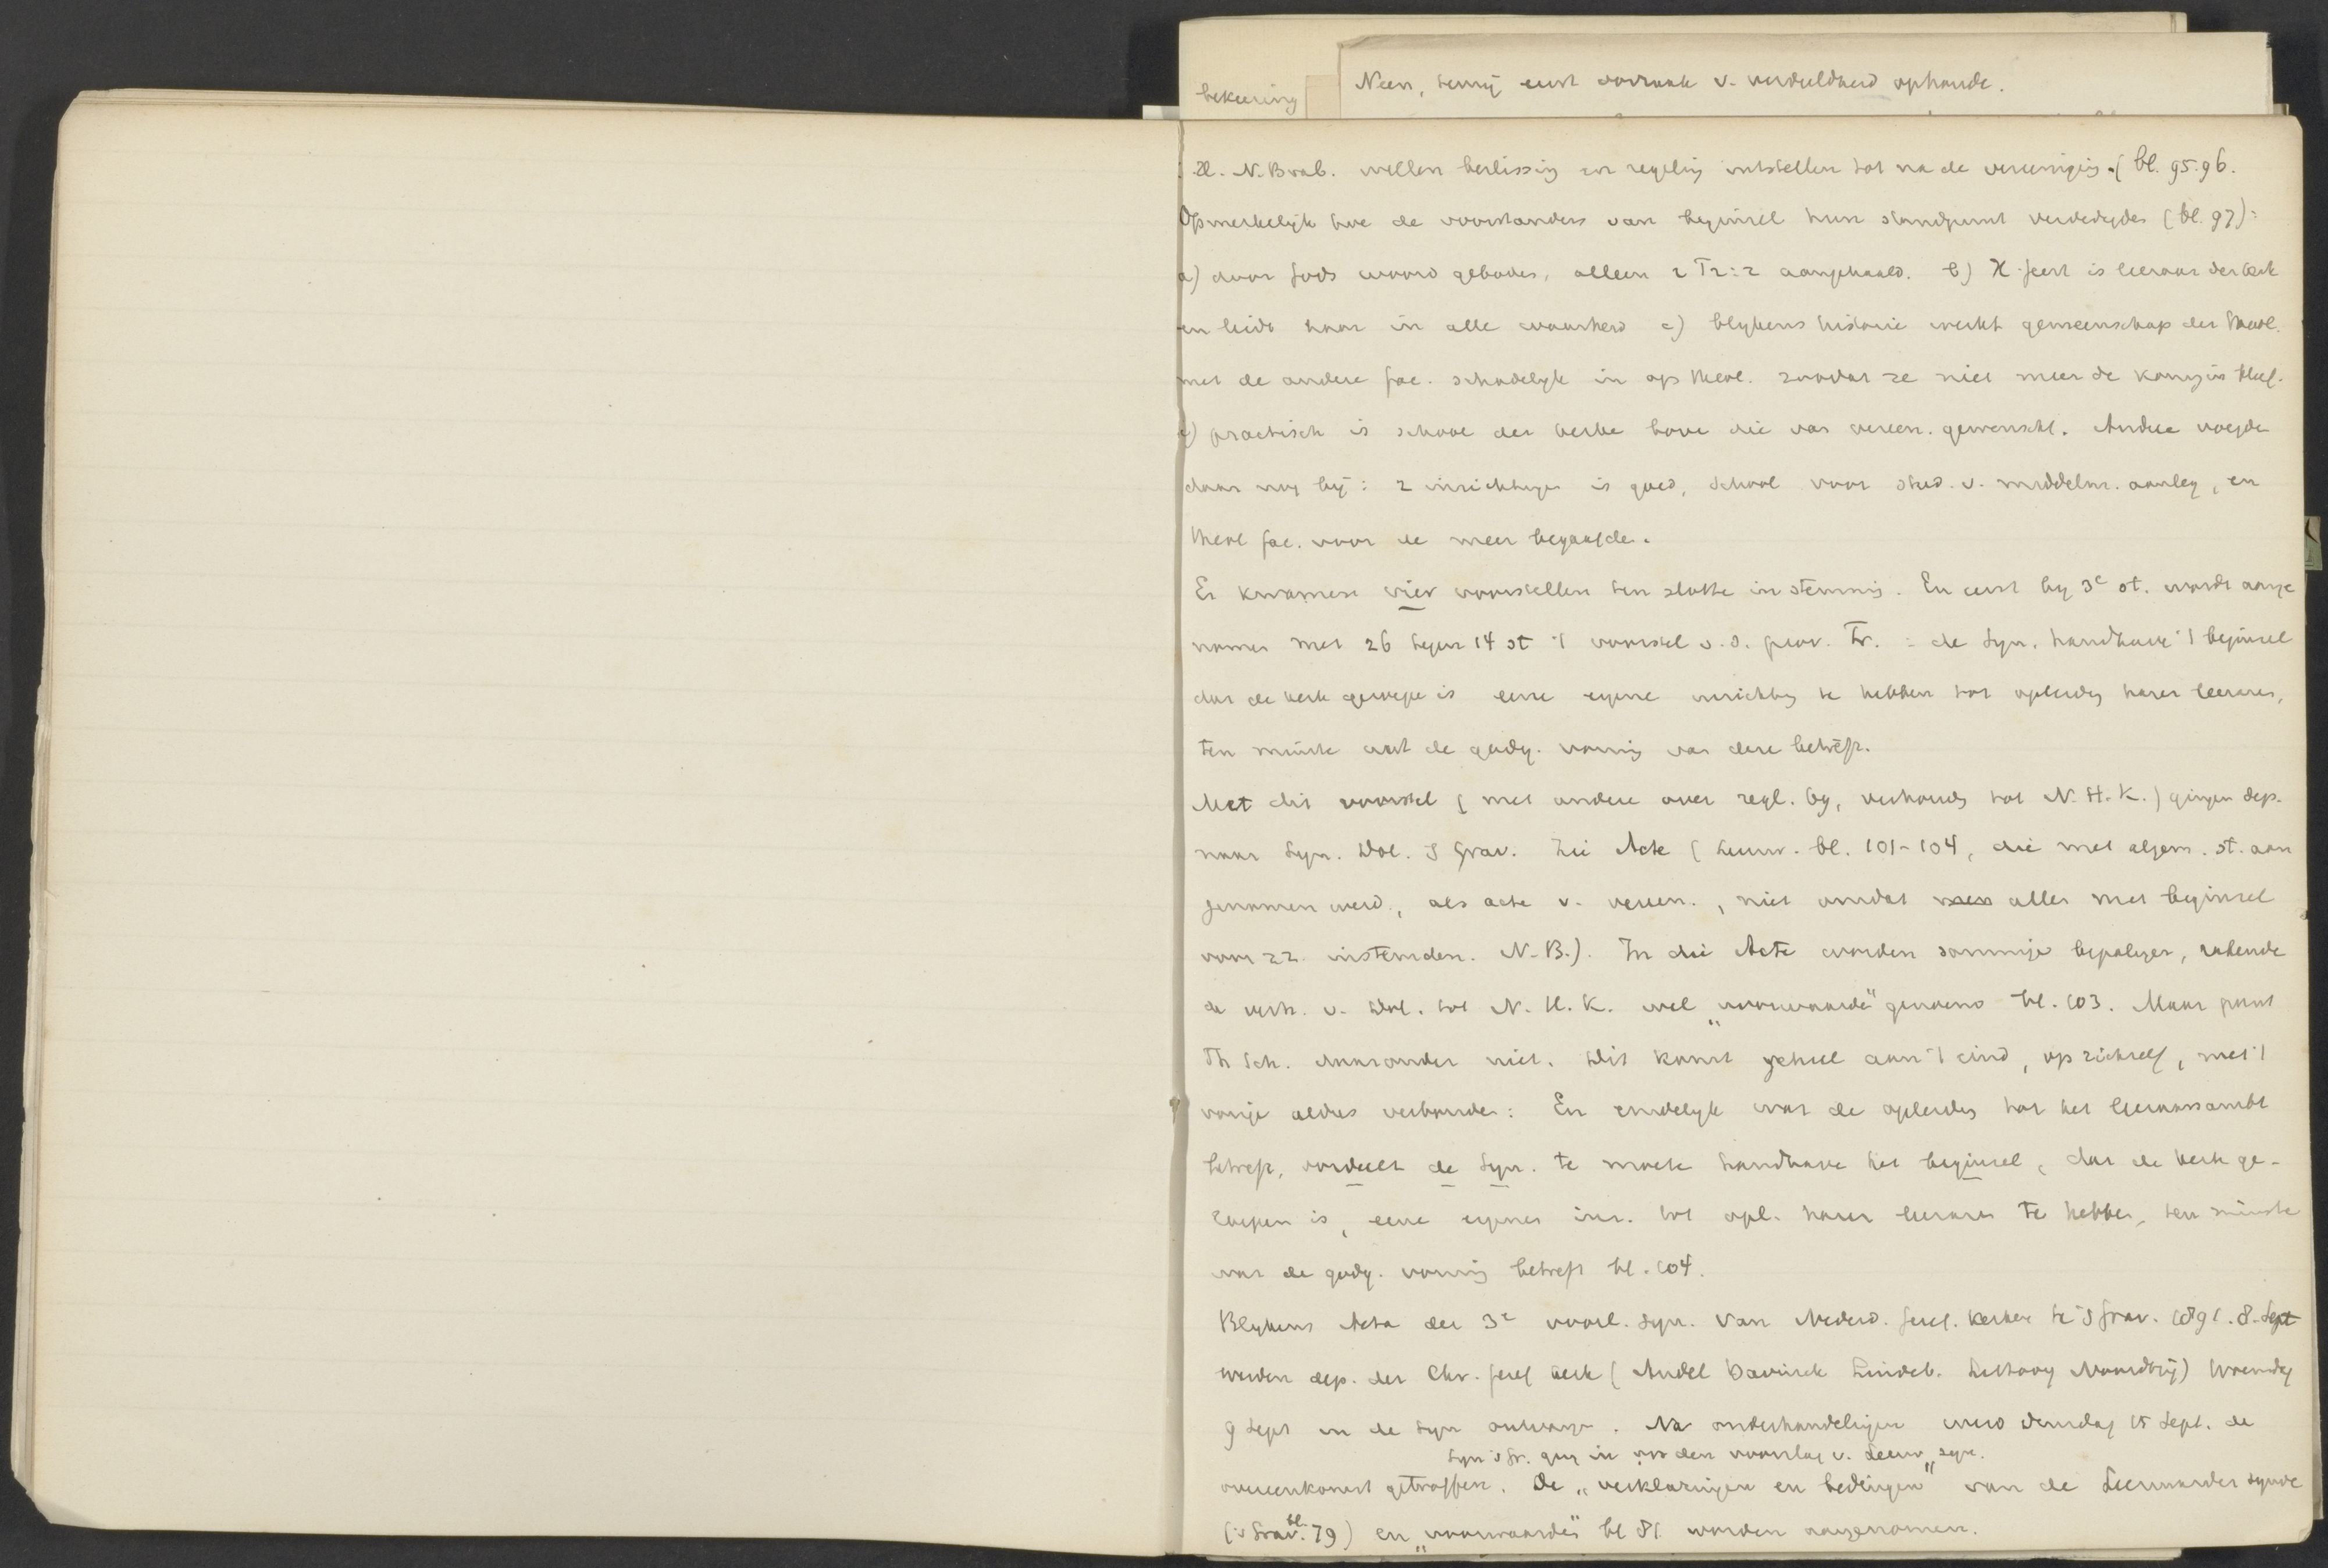 bekeering
Neen, tenzij eerst oorzaak v. verdeeldheid ophoude.
Zl. N. Brab. willen beslissing en regeling uitstellen tot na de vereeniging. (bl. 95. 96.
Opmerkelijk hoe de voorstanders van beginsel hun standpunt verdedigden (bl. 97):
a) door Gods woord geboden, alleen 2 T 2:2 aangehaald. b) H. Geest is leeraar der kerk
en leidt haar in alle waarheid c) blykens historie werkt gemeenschap der theol.
met de andere fac. schadelyk in op theol. zoodat ze niet meer de koningin bleef.
d) practisch is school der kerke boven die van vereen. gewenscht. Andere voegden
daar nog bij: 2 inrichtingen is goed, school voor stud. v. middelm. aanleg, en
theol fac. voor de meer begaafden.
Er kwamen vier voorstellen ten slotte in stemming. En eerst by 3e st. wordt aange
nomen met 26 tegen 14 st 't voorstel v. d. prov. Fr. = de Syn. handhave 't beginsel
dat de kerk geroepen is eene eigene inrichting te hebben tot opleiding harer leeraren,
ten minste wat de godg. vorming van deze betreft.
Met dit voorstel (met andere over regl. by, verhoudg tot N. H. K.) gingen dep.
naar Syn. Dol. 's Grav. Zie Acte (Leeuw. bl. 101-104, die met algem. st. aan
genomen werd, als acte v. vereen., niet omdat men allen met beginsel
voor zz. instemden. N. B.). In die Acte worden sommige bepalingen, rakende
de verh. v. Dol. tot N. H. K. wel „voorwaarde" genoemd bl. 103. Maar punt
Th Sch. daaronder niet. Dit komt geheel aan 't eind, op zichzelf, met 't
vorige aldus verbonden: En eindelyk wat de opleidg tot het leeraarsambt
betreft, oordeelt de Syn. te moete handhave het beginsel, dat de kerk ge-
roepen is, eene eigene inr. tot opl. harer leeraren te hebben, ten minste
wat de godg. vorming betreft bl. 104.
Blykens Acta der 3e voorl. syn. van Nederd. Geref. Kerken te 's Grav. 1891. 8. Sept
werden dep. der Chr. Geref Kerk (Andel Bavinck Lindeb. Littooy Noordtzij) Woensdag
9 Sept in de Syn ontvangen. Na onderhandelingen werd dinsdag 15 Sept. de
Syn 's Gr. ging in op den voorslag v. Leeuw. syn.
overeenkomst getroffen. De „verklaringen en bedingen" van de Leeuwarder synode
('s Grav. bl. 79) en „voorwaarden" bl 81 worden aangenomen.